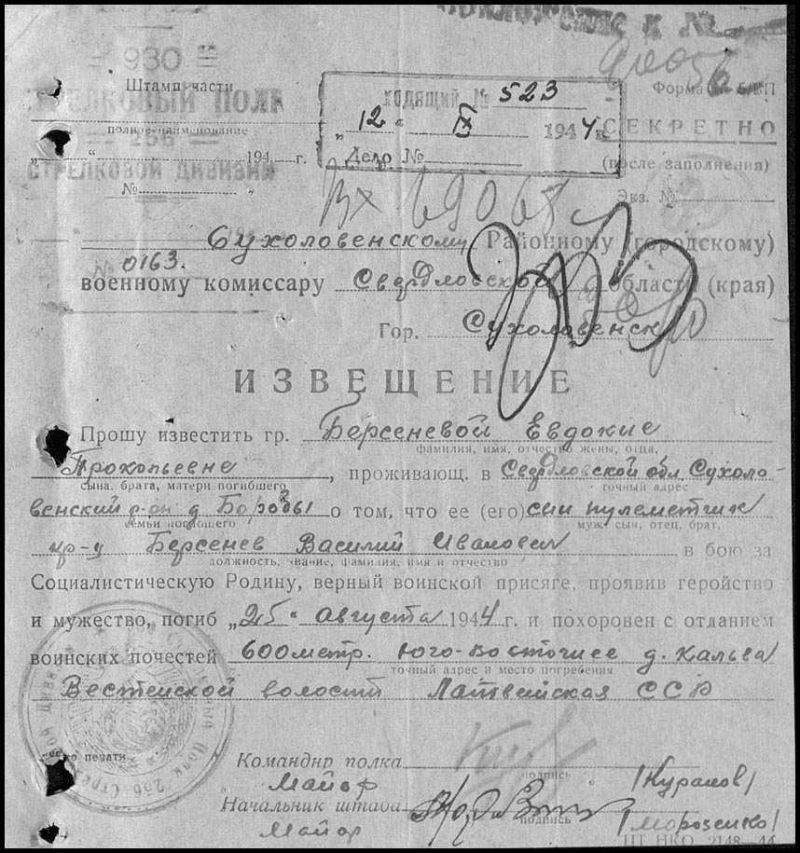 930
Штамп части
СТРЕЛКОВЫЙ ПОЛК
полное наименование
256
СТРЕЛКОВОЙ ДИВИЗИИ
194 г.
№
Входящий № 523
"12" IX 1944 г.
Дело №
Форма № Б/БП
СЕКРЕТНО
(после заполнения)
Экз. №
Вх 69068
Сухоловенскому Районному (городскому)
№ 0163.
военному комиссару Свердловской области (края)
Гор. Сухоловенск
ИЗВЕЩЕНИЕ
Прошу известить гр. Берсеневой Евдокие
фамилия, имя, отчество жены, отца,
Прокопьевне, проживающ. в Свердловской обл Сухоло-
сына, брата, матери погибшего
точный адрес
венский р-он д о том, что ее (его) сын пулеметчик
семьи погибшего
муж, сын, отец, брат,
кр-ц Берсенев Василий Иванович в бою за
должность, звание, фамилия, имя и отчество
Социалистическую Родину, верный воинской присяге, проявив геройство
и мужество, погиб „25" августа 1944 г. и похоронен с отданием
воинских почестей 600 метр. юго-восточнее д. Кальва
точный адрес и место погребения
Вестенской волости Латвийская ССР
Место печати
Командир полка
Майор
подпись
/Куралов/
Начальник штаба
Майор
подпись
/Морозенко/